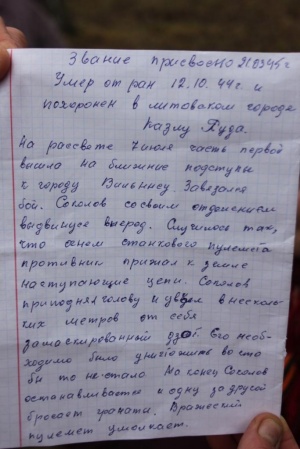 Звание присвоено 24.03.45г
Умер от ран 12.10.44г. и
похоронен в литовском городе
Казлу Руда.
На рассвете 7 июля часть первой
вышла на ближние подступы
к городу Вильнюсу. Завязался
бой. Соколов со своим отделением
выдвинулся вперед. Случилось так,
что огнем станкового пулемета
противник прижал к земле
наступающие цепи. Соколов
приподнял голову и увидел в несколь-
ких метров от себя
замаскированный дзот. Его необ-
ходимо было уничтожить во что
бы то не стало. На конец Соколов
останавливается и одну за другой
бросает гранаты. Вражеский
пулемет умолкает.